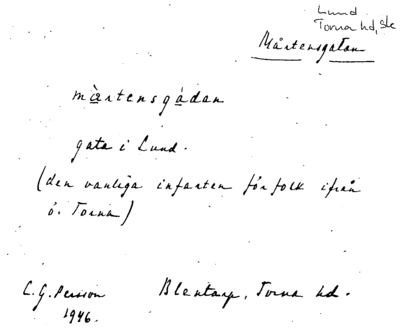 Lund
Torna hd, sk
Mårtensgatan
màrtensgádan
gata i Lund.
(den vanliga infarten för folk ifrån
ö. Torna)
C. G. Persson Blentarp, Torna hd.
1946.